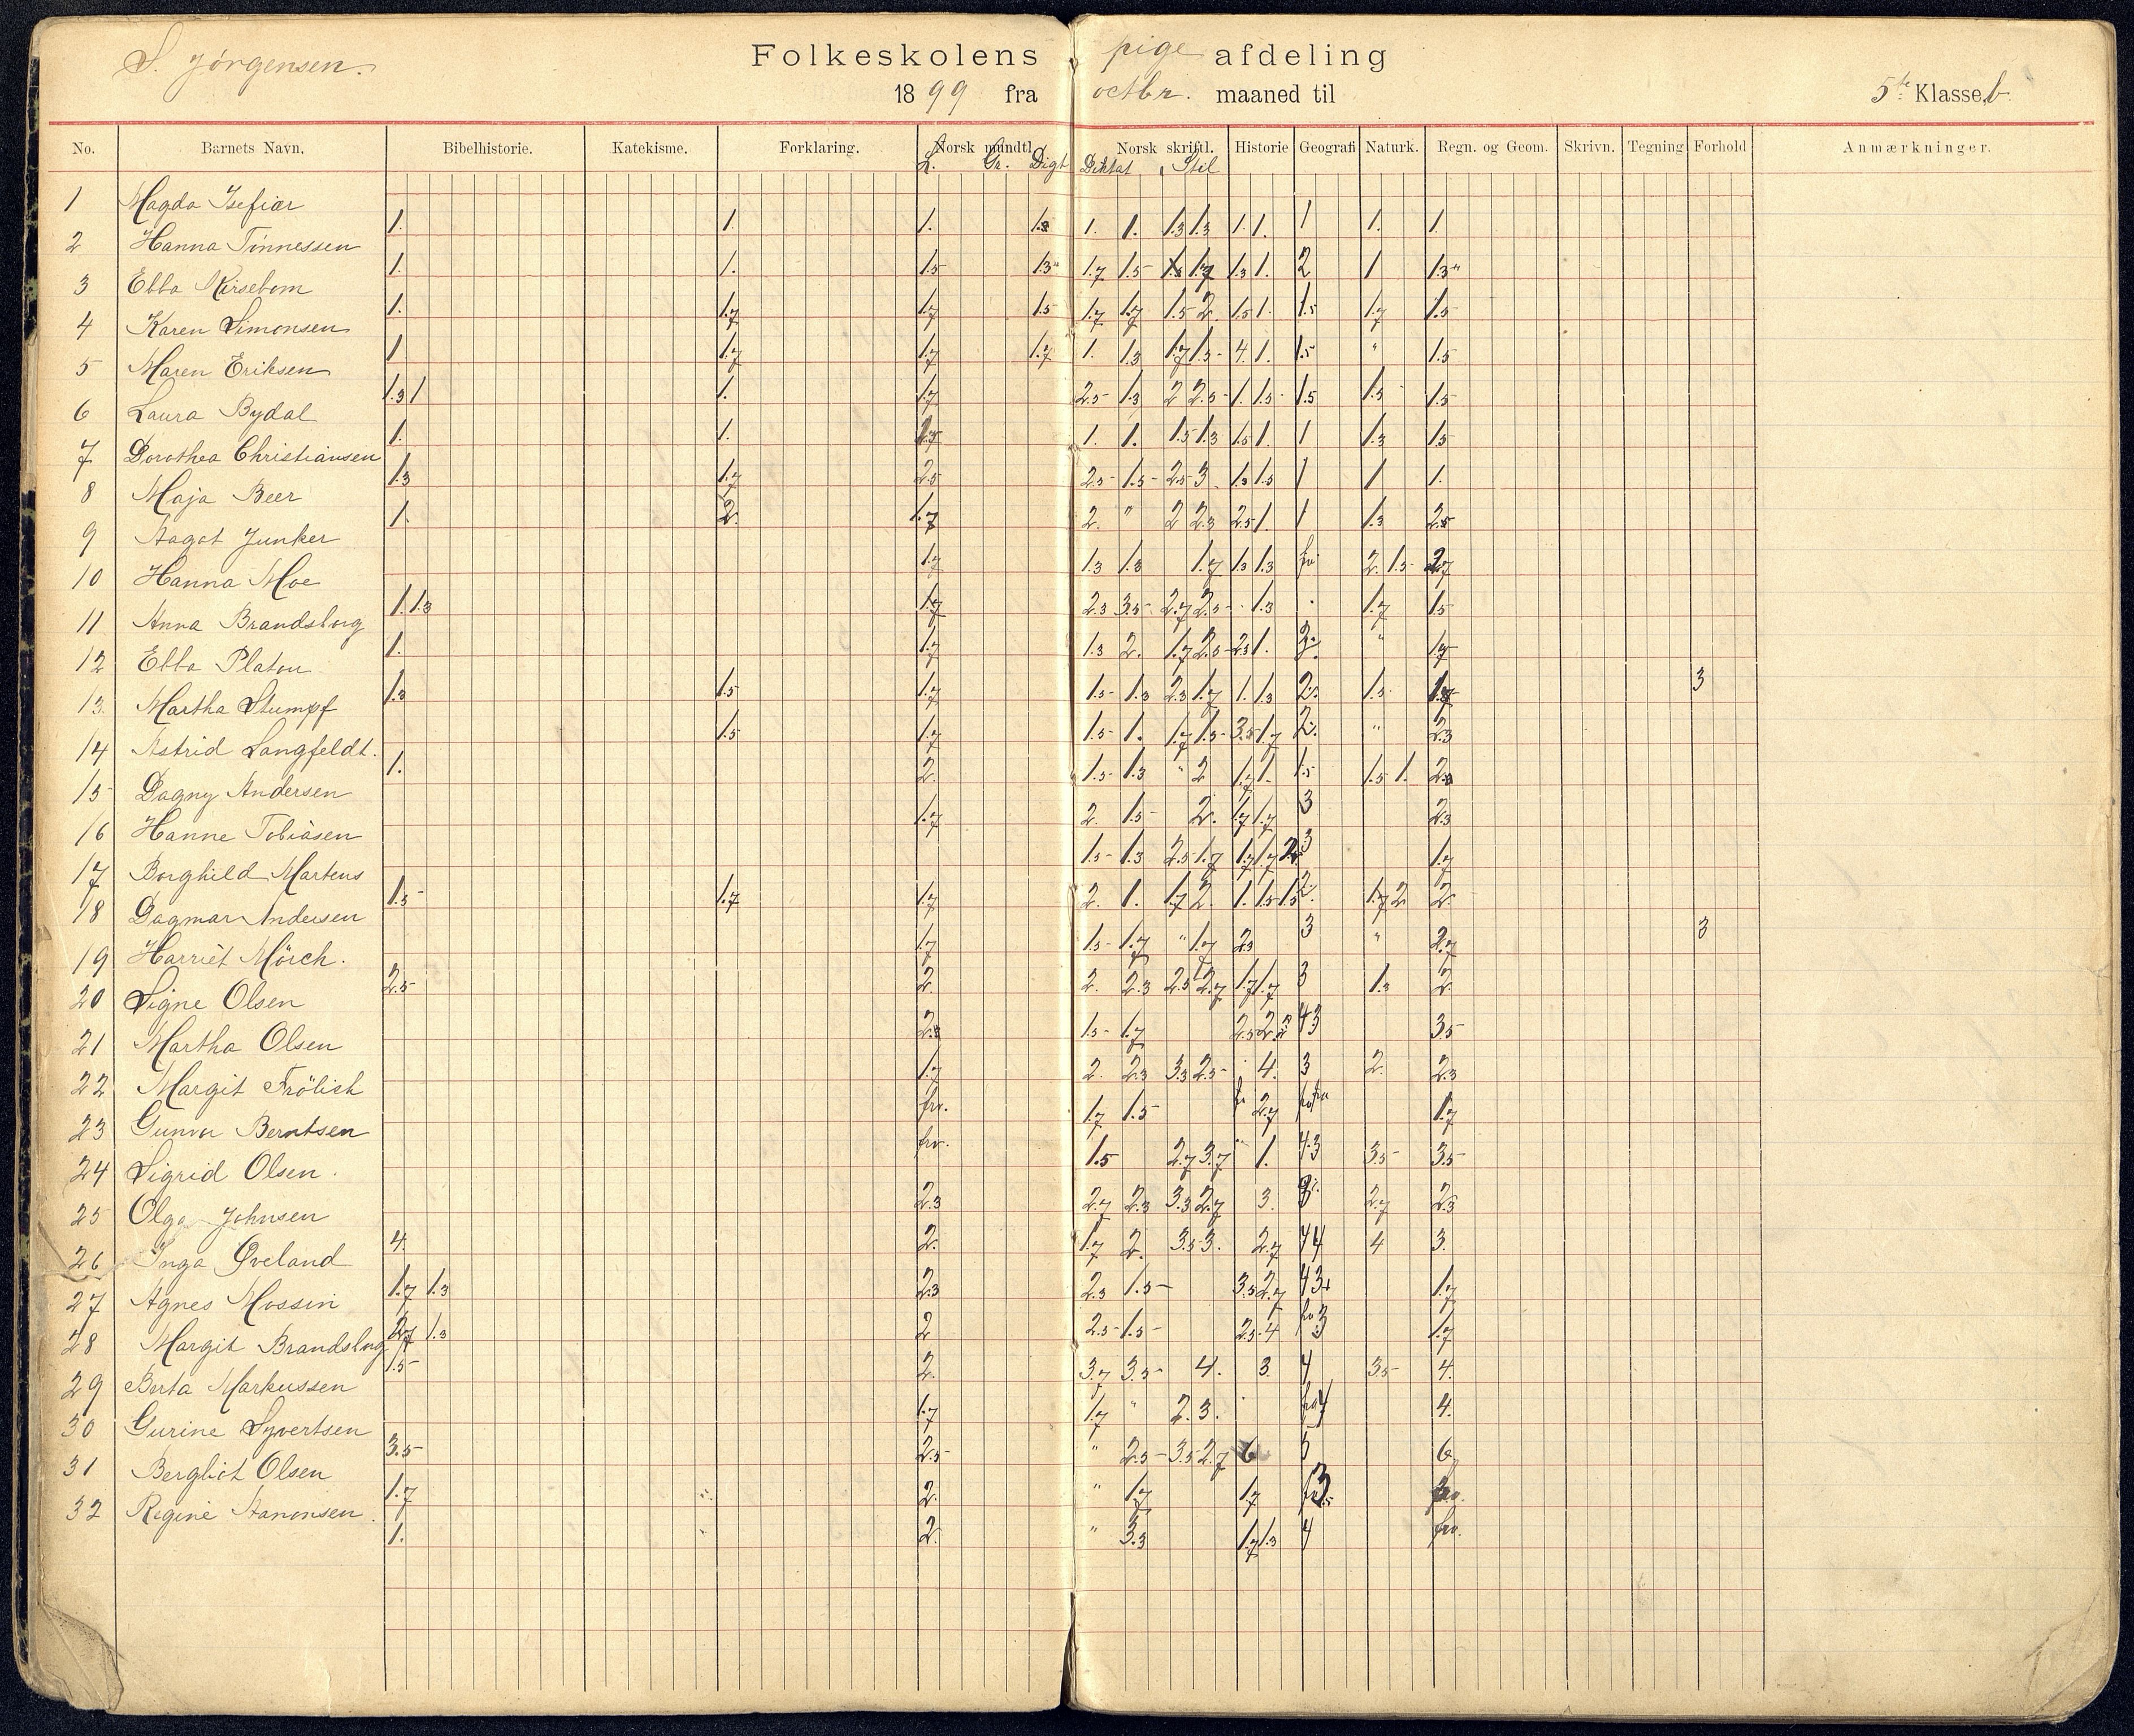 S. Jørgensen. Folkeskolens pige afdeling
1899 fra octbr. maaned til 5te Klasse b.
No. Barnets Navn. Bibelhistorie. Katekisme. Forklaring. Norsk mundtl. Norsk skriftl. Historie Geografi Naturk. Regn. og Geom. Skrivn. Tegning Forhold Anmærkninger.
L. Gr. Digt Diktat Stil
1 Magda Isefiær
1. 1. 1. 1.3 1. 1. 1.3 1.3 1. 1. 1 1. 1.
2 Hanna Tönnessen
1. 1. 1.5 1.3 1.7 1.5 1.7 1.3 1. 2 1 1.3
3 Ebba Kirsebom
1. 1.7 1.7 1.5 1.7 1.7 1.5 2. 1.5 1. 1.5 1.7 1.5
4 Karen Simonsen
1 1.7 1.7 1.7 1. 1.3 1.7 1.5 4. 1. 1.5 " 1.5
5 Maren Eriksen
1.3 1 1. 1.7 2.5 1.3 2 2.5 1. 1.5 1.5 1.5 1.5
6 Laura Bydal
1. 1. 1. 1. 1.5 1.3 1.5 1. 1 1.3 1.5
7 Dorothea Christiansen
1.3 1.7 2.5 2.5 1.5 2.5 3. 1.3 1.5 1 1 1.
8 Maja Beer
1. 2. 1.7 2. " 2 2.3 2.5 1. 1 1.3 2.5
9 Aagot Junker
1.7 1.3 1.3 1.7 1.3 1.3 fr 2. 1.5 2.7
10 Hanna Moe
1. 1.3 1.7 2.3 3.5 2.7 2.5 1.3 1.7 1.5
11 Anna Brandsborg
1. 1.7 1.3 2. 1.7 2.5 2.3 1. 2. " 1.7
12 Ebba Platou
1.3 1.5 1.7 1.5 1.3 2.3 1.7 1. 1.3 2. 1.5 1.7 3
13. Martha Stumpf
1.5 1.7 1.5 1. 1.7 1.5 3.5 1.7 2. " 2.3
14 Astrid Langfeldt.
1. 2. 1.5 1.3 " 2 1.7 1. 1.5 1.5 1. 2.3
15 Dagny Andersen
1.7 2. 1.5 2. 1.7 1.7 3 2.3
16 Hanne Tobiasen
1.5 1.3 2.5 1.7 1.7 1.7 2 3 1.7
17 Borghild Martens
1.5 1.7 1.7 2. 1. 1.7 2. 1. 1.5 1.5 2. 1.7 2 2.
18 Dagmar Andersen
1.7 1.5 1.7 " 1.7 2.3 3 " 2.7 3
19 Harriet Mörch.
2.5 2. 2. 2.3 2.5 2.7 1.7 1.7 3 1.3 2.
20 Signe Olsen
2.3 1.5 1.7 2.5 2. 4 3 3.5
21 Martha Olsen
1.7 2. 2.3 3.3 2.5 4. 3 2. 2.3
22 Margit Frölich
frv. 1.7 1.5 fr 2.7 1.7
23 Gunvor Berntsen
frv. 1.5 2.7 3.7 " 1. 4 3 3.5 3.5
24 Sigrid Olsen.
2.3 2.7 2.3 3.3 2.7 3. 3 2.7 2.3
25 Olga Johnsen
4. 2. 1.7 2. 3.5 3. 2.7 4 4 4 3.
26 Inga Øveland
1.7 1.3 2.3 2.3 1.5 3.5 2.7 4 3 1.7
27 Agnes Mossin
2.7 1.3 2 2.5 1.5 2.5 4 3 1.7
28 Margit Brandsborg
1.5 2. 3.7 3.5 4. 3. 4 3.5 4.
29 Berta Markussen
1.7 1.7 " 2. 3. 4 4.
30 Gurine Syvertsen
3.5 2.5 " 2.5 3.5 2.7 6 5 6
31 Bergliot Olsen
1.7 2. " 1.7 1.7 3
32 Regine Aanonsen.
1. 2. " 3.3 1.7 1.3 4 frv.